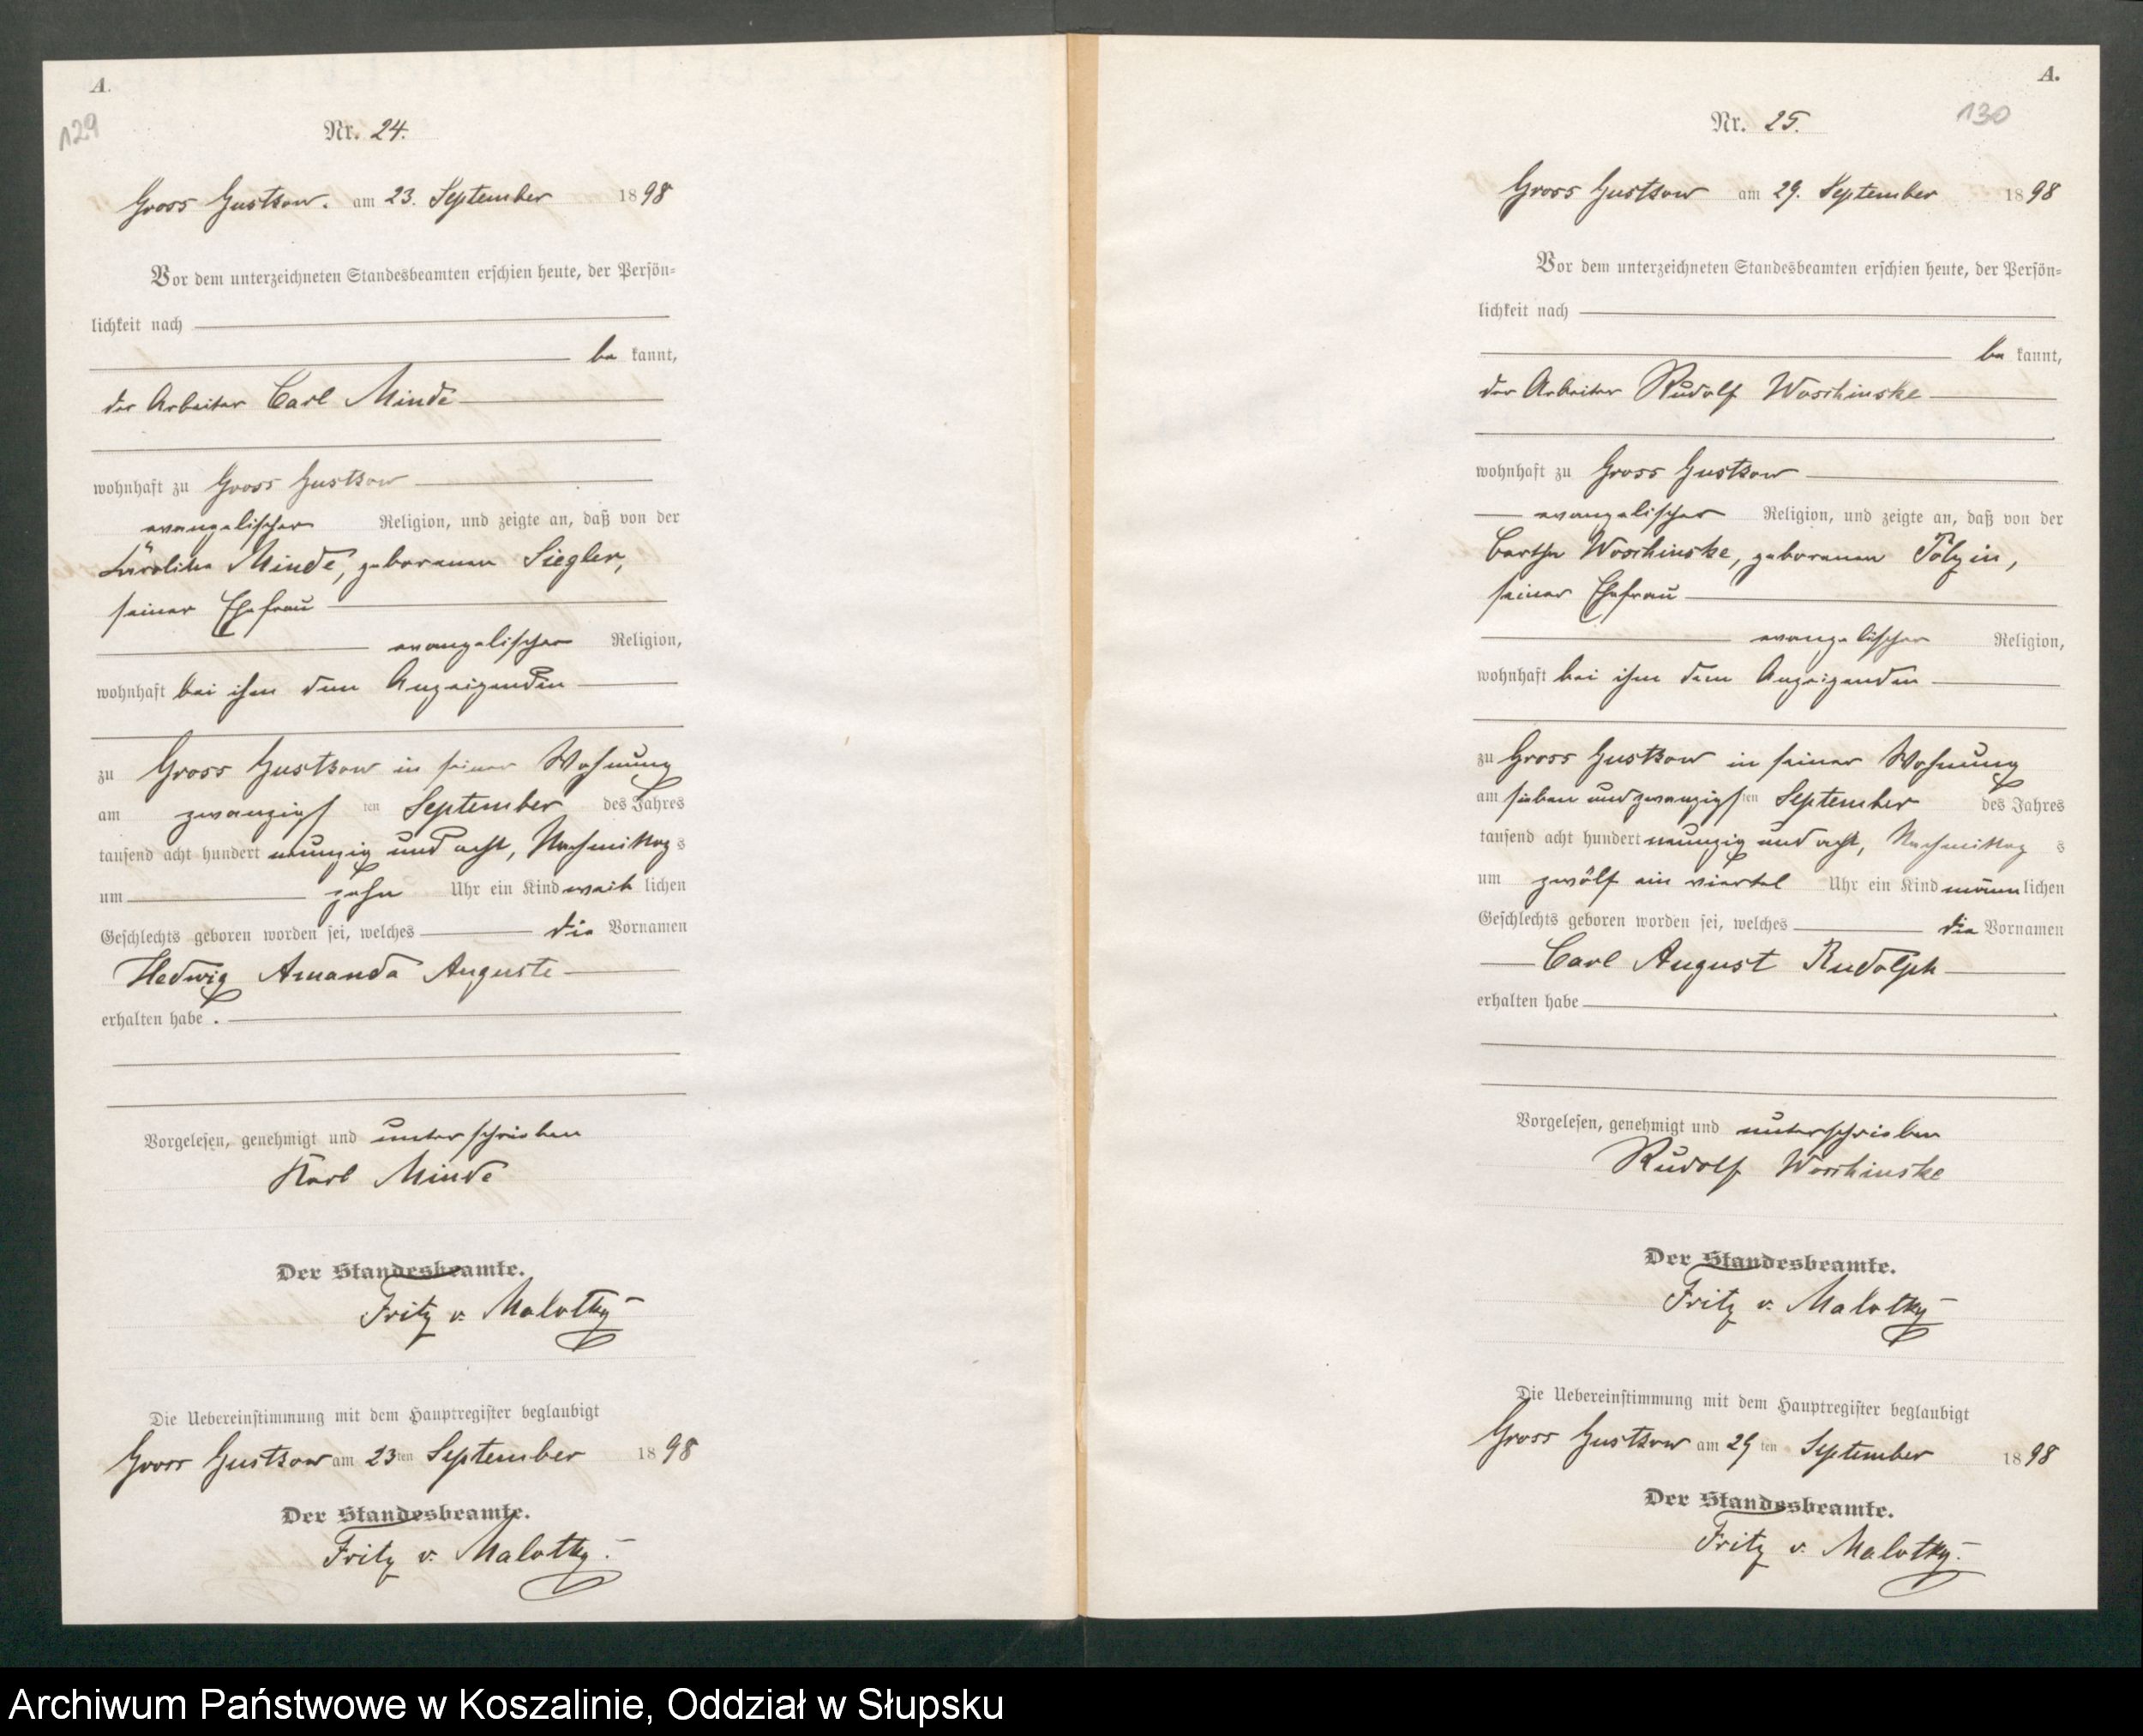 A.
129
Nr. 24.
Gross Gustkow. am 23. September 1898
Vor dem unterzeichneten Standesbeamten erschien heute, der Persön-
lichkeit nach
be kannt,
der Arbeiter Carl Minde
wohnhaft zu Gross Gustkow
evangelischer Religion, und zeigte an, daß von der
Minde, geborenen Siegler,
seiner Ehefrau
evangelischer Religion,
wohnhaft bei ihm dem Anzeigenden
zu Gross Gustkow in seiner Wohnung
am zwanzigs ten September des Jahres
tausend acht hundert neunzig und acht, Nachmittag s
um zehn Uhr ein Kind weib lichen
Geschlechts geboren worden sei, welches die Vornamen
Hedwig Amanda Auguste
erhalten habe .
Vorgelesen, genehmigt und unterschrieben
Karl Minde
Der Standesbeamte.
Fritz v. Malotky
Die Uebereinstimmung mit dem Hauptregister beglaubigt
Gross Gustkow am 23ten September 1898
Der Standesbeamte.
Fritz v. Malotky.
A.
130
Nr. 25.
Gross Gustkow am 29. September 1898
Vor dem unterzeichneten Standesbeamten erschien heute, der Persön-
lichkeit nach
be kannt,
der Arbeiter Rudolf Woschinske
wohnhaft zu Gross Gustkow
evangelischer Religion, und zeigte an, daß von der
Bertha Woschinske, geborenen Pölzin,
seiner Ehefrau
evangelischer Religion,
wohnhaft bei ihm dem Anzeigenden
zu Gross Gustkow in seiner Wohnung
am sieben und zwanzigs ten September des Jahres
tausend acht hundert neunzig und acht, Nachmittag s
um zwölf ein viertel Uhr ein Kind männ lichen
Geschlechts geboren worden sei, welches die Vornamen
Carl August Rudolph
erhalten habe
Vorgelesen, genehmigt und unterschrieben
Rudolf Woschinske
Der Standesbeamte.
Fritz v. Malotky
Die Uebereinstimmung mit dem Hauptregister beglaubigt
Gross Gustkow am 29 ten September 1898
Der Standesbeamte.
Fritz v. Malotky.
Archiwum Państwowe w Koszalinie, Oddział w Słupsku